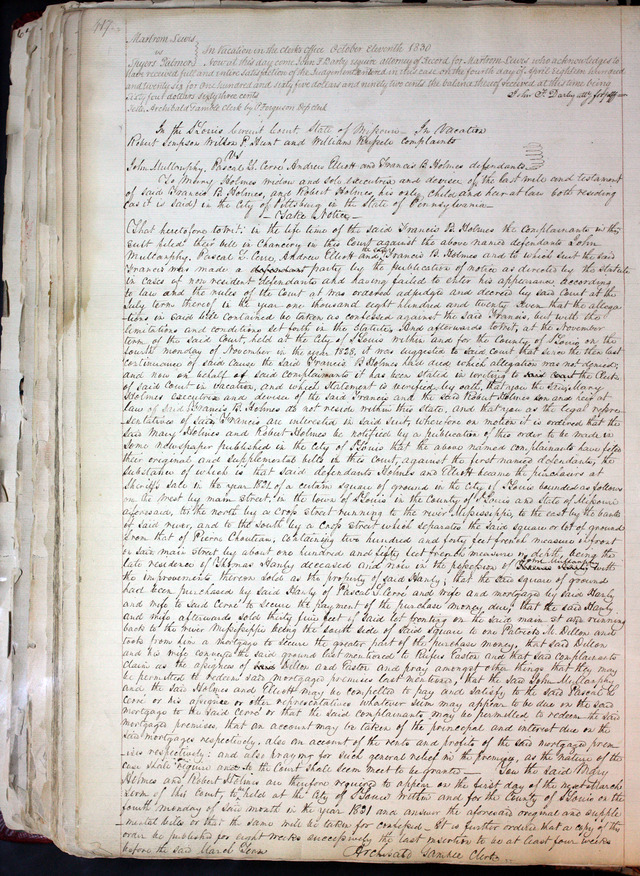 417
Martrom Lewis
vs
Myers Palmer
In Vacation in the clerks office October Eleventh 1830
Now at this day come John F Darby esquire attorney of Record for Martrom Lewis who acknowledges to
have received full and entire satisfaction of the Judgement entered in this case on the fourth day of April Eighteen hundred
and twenty six for one hundred and sixty five dollars and ninety two cents the balance thereof received at this time being
sixty four dollars sixty three cents
John F. Darby atty for plff
Teste Archibald Gamble Clerk by P Ferguson Dep clk
In the St Louis Circuit Court State of Missouri In Vacation
Robert Simpson Wilson P. Hunt and William complaints
vs
John Mullanphy, Pascal L. Cerré Andrew Elliott and Francis B. Holmes defendants
To Mary Holmes widow and Sole executrix and devisee of the last will and testament
of Said Francis B. Holmes, and Robert Holmes his only child and heir at law both residing
(as it is said) in the City of Pittsburg in the State of Pennsylvania
Take Notice
That heretofore to wit: in the life time of the Said Francis B. Holmes the Complainants in this
suit filed their bill in Chancery in this Court against the above named defendants John
Mullanphy, Pascal L. Cerre, Andrew Elliott and the said Francis B. Holmes and to which suit the said
Francis was made a party by the publication of notice as directed by the Statute
in cases of non resident defendants and having failed to enter his appearance according
to law and the rules of the Court it was ordered adjudged and decreed by said Court at the
July term thereof in the year one thousand eight hundred and twenty seven that the allega-
tions in said bill contained be taken as confessed against the said Francis, but with the
limitations and conditions set forth in the Statute. And afterwards to wit, at the November
term of the said Court, held at the City of St Louis within and for the County of St Louis on the
fourth monday of November in the year 1828, it was suggested to said Court that since the then last
continuance of said Cause the said Francis B Holmes had died which allegation was not denied;
and now on behalf of said Complainants it has been stated in writing to the Clerk
of said Court in vacation, and which Statement is verified by oath, that you the said Mary
Holmes executrix and devisee of the said Francis and the said Robert Holmes son and heir at
law of said Francis B. Holmes do not reside within this State, and that you as the legal repre-
sentatives of said Francis are interested in said suit; wherefore on motion it is ordered that the
said Mary Holmes and Robert Holmes be notified by a publication of this order to be made in
some newspaper published in the City of St Louis that the above named complainants have filed
their original and supplemental bills in this Court against the first named defendants, the
substance of which is that said defendants Holmes and Elliott became the purchasers at
Sheriffs sale in the year 1821 of a certain square of ground in the City of St Louis bounded as follows
on the West by main street in the town of St Louis in the County of St Louis and State of Missouri
aforesaid, to the north by a cross street running to the river Mississippi, to the east by the bank
of said river, and to the South by a cross street which separates the said square or lot of ground
from that of Pierre Chouteau, Containing two hundred and forty feet french measure in front
on said main street by about one hundred and fifty feet french measure in depth, being the
late residence of Thomas Hanly deceased and now in the possession of John Mullanphy with
the improvements thereon sold as the property of said Hanly; that the said square of ground
had been purchased by said Hanly of Pascal L Cerré and wife and mortgaged by said Hanly
and wife to said Cerré to secure the payment of the purchase money due; that the said Hanly
and wife afterwards sold thirty five feet of said lot fronting on the said main st and running
back to the river Mississippi being the south side of said square to one Patrick M. Dillon and
took from him a mortgage to secure the greater part of the purchase money; that said Dillon
and his wife conveyed the said ground last mentioned to Rufus Easton and that said complainants
claim as the assignees of said Dillon and Easton and pray amongst other things that they may
be permitted to redeem said mortgaged premises last mentioned, that the said John Mullanphy
and the said Holmes and Elliott may be compelled to pay and satisfy to the said Pascal L
Cerré or his assignee or other representatives whatever sum may appear to be due on the said
mortgage to the said Cerré or that the said complainants may be permitted to redeem the said
mortgaged premises that an account may be taken of the principal and interest due on the
said mortgages respectively, also an account of the rents and profits of the said mortgaged prem-
ises respectively: and also praying for such general relief in the premises, as the nature of the
case shall require and as the Court shall seem meet to be granted — You the said Mary
Holmes and Robert Holmes are therefore required to appear on the first day of the next March
term of this Court, to be held at the City of St Louis within and for the County of St Louis on the
fourth monday of said month in the year 1831 and answer the aforesaid original and supple-
mental bills or that the same will be taken for confessed. It is further ordered that a copy of this
order be published for eight weeks successively the last insertion to be at least four weeks
before the said March Term
Archibald Gamble Clerk